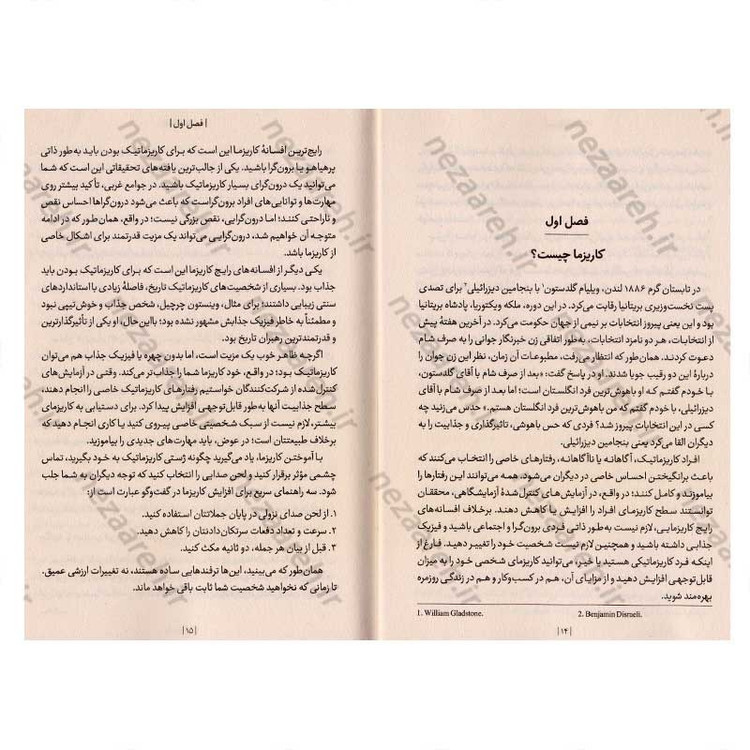 فصل اول
کاریزما چیست؟
در تابستان گرم ۱۸۸۶ لندن، ویلیام گلدستون¹ با بنجامین دیزرائیلی² برای تصدی
پست نخست‌وزیری بریتانیا رقابت می‌کرد. در این دوره، ملکه ویکتوریا، پادشاه بریتانیا
بود و این یعنی پیروز انتخابات بر نیمی از جهان حکومت می‌کرد. در آخرین هفتهٔ پیش
از انتخابات، هر دو نامزد انتخابات، به‌طور اتفاقی زن خبرنگار جوانی را به صرف شام
دعوت کردند. همان‌طور که انتظار می‌رفت، مطبوعات آن زمان، نظر این زن جوان را
دربارهٔ این دو رقیب جویا شدند. او در پاسخ گفت: «بعد از صرف شام با آقای گلدستون،
با خودم گفتم که او باهوش‌ترین فرد انگلستان است؛ اما بعد از صرف شام با آقای
دیزرائیلی، با خودم گفتم که من باهوش‌ترین فرد انگلستان هستم.» حدس می‌زنید چه
کسی در این انتخابات پیروز شد؟ فردی که حس باهوشی، تاثیرگذاری و جذابیت را به
دیگران القا می‌کرد یعنی بنجامین دیزرائیلی.
افراد کاریزماتیک، آگاهانه یا ناآگاهانه، رفتارهای خاصی را انتخاب می‌کنند که
باعث برانگیختن احساس خاصی در دیگران می‌شود. همه می‌توانند این رفتارها را
بیاموزند و کامل کنند؛ در واقع، در آزمایش‌های کنترل شدهٔ آزمایشگاهی، محققان
توانستند سطح کاریزمای افراد را افزایش یا کاهش دهند. برخلاف افسانه‌های
رایج کاریزمایی، لازم نیست به‌طور ذاتی فردی برون‌گرا و اجتماعی باشید و فیزیک
جذابی داشته باشید و همچنین لازم نیست شخصیت خود را تغییر دهید. فارغ از
اینکه فرد کاریزماتیکی هستید یا خیر، می‌توانید کاریزمای شخصی خود را به میزان
قابل‌توجهی افزایش دهید و از مزایای آن، هم در کسب‌وکار و هم در زندگی روزمره
بهره‌مند شوید.
1. William Gladstone. 2. Benjamin Disraeli.
|۱۴|
|فصل اول|
رایج‌ترین افسانهٔ کاریزما این است که برای کاریزماتیک بودن باید به‌طور ذاتی
پرهیاهو یا برون‌گرا باشید. یکی از جالب‌ترین یافته‌های تحقیقاتی این است که شما
می‌توانید یک درون‌گرای بسیار کاریزماتیک باشید. در جوامع غربی، تأکید بیشتر روی
مهارت‌ها و توانایی‌های افراد برون‌گراست که باعث می‌شود درون‌گراها احساس نقص
و ناراحتی کنند؛ اما درون‌گرایی، نقص بزرگی نیست؛ در واقع، همان‌طور که در ادامه
متوجه آن خواهیم شد، درون‌گرایی می‌تواند یک مزیت قدرتمند برای اشکال خاصی
از کاریزما باشد.
یکی دیگر از افسانه‌های رایج کاریزما این است که برای کاریزماتیک بودن باید
جذاب بود. بسیاری از شخصیت‌های کاریزماتیک تاریخ، فاصلهٔ زیادی با استانداردهای
سنتی زیبایی داشتند؛ برای مثال، وینستون چرچیل، شخص جذاب و خوش‌تیپی نبود
و مطمئناً به خاطر فیزیک جذابش مشهور نشده بود؛ بااین‌حال، او یکی از تأثیرگذارترین
و قدرتمندترین رهبران تاریخ بود.
اگرچه ظاهر خوب یک مزیت است، اما بدون چهره یا فیزیک جذاب هم می‌توان
کاریزماتیک بود؛ در واقع، خود کاریزما شما را جذاب‌تر می‌کند. وقتی در آزمایش‌های
کنترل شده از شرکت‌کنندگان خواستیم رفتارهای کاریزماتیک خاصی را انجام دهند،
سطح جذابیت آنها به‌طور قابل‌توجهی افزایش پیدا کرد. برای دستیابی به کاریزمای
بیشتر، لازم نیست از سبک شخصیتی خاصی پیروی کنید یا کاری انجام دهید که
برخلاف طبیعتتان است؛ در عوض، باید مهارت‌های جدیدی را بیاموزید.
با آموختن کاریزما، یاد می‌گیرید چگونه ژستی کاریزماتیک به خود بگیرید، تماس
چشمی مؤثر برقرار کنید و لحن صدایی را انتخاب کنید که توجه دیگران به شما جلب
شود. سه راهنمای سریع برای افزایش کاریزما در گفت‌وگو عبارت است از:
۱. از لحن صدای نزولی در پایان جملاتتان استفاده کنید.
۲. سرعت و تعداد دفعات سرتکان‌دادنتان را کاهش دهید.
۳. قبل از بیان هر جمله، دو ثانیه مکث کنید.
همان‌طور که می‌بینید، این‌ها ترفندهایی ساده هستند، نه تغییرات ارزشی عمیق.
تا زمانی که نخواهید شخصیت شما ثابت باقی خواهد ماند.
|۱۵|
nezaareh.ir